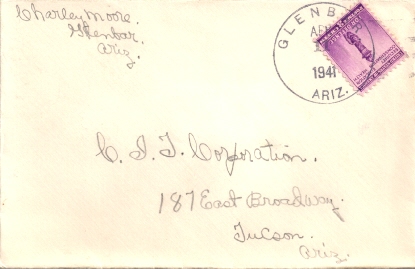 Charley Moore.
Glenbar.
Ariz.
GLENB
AP
1941
ARIZ.
C. I. T. Corporation.
187 East Broadway.
Tucson.
Ariz.